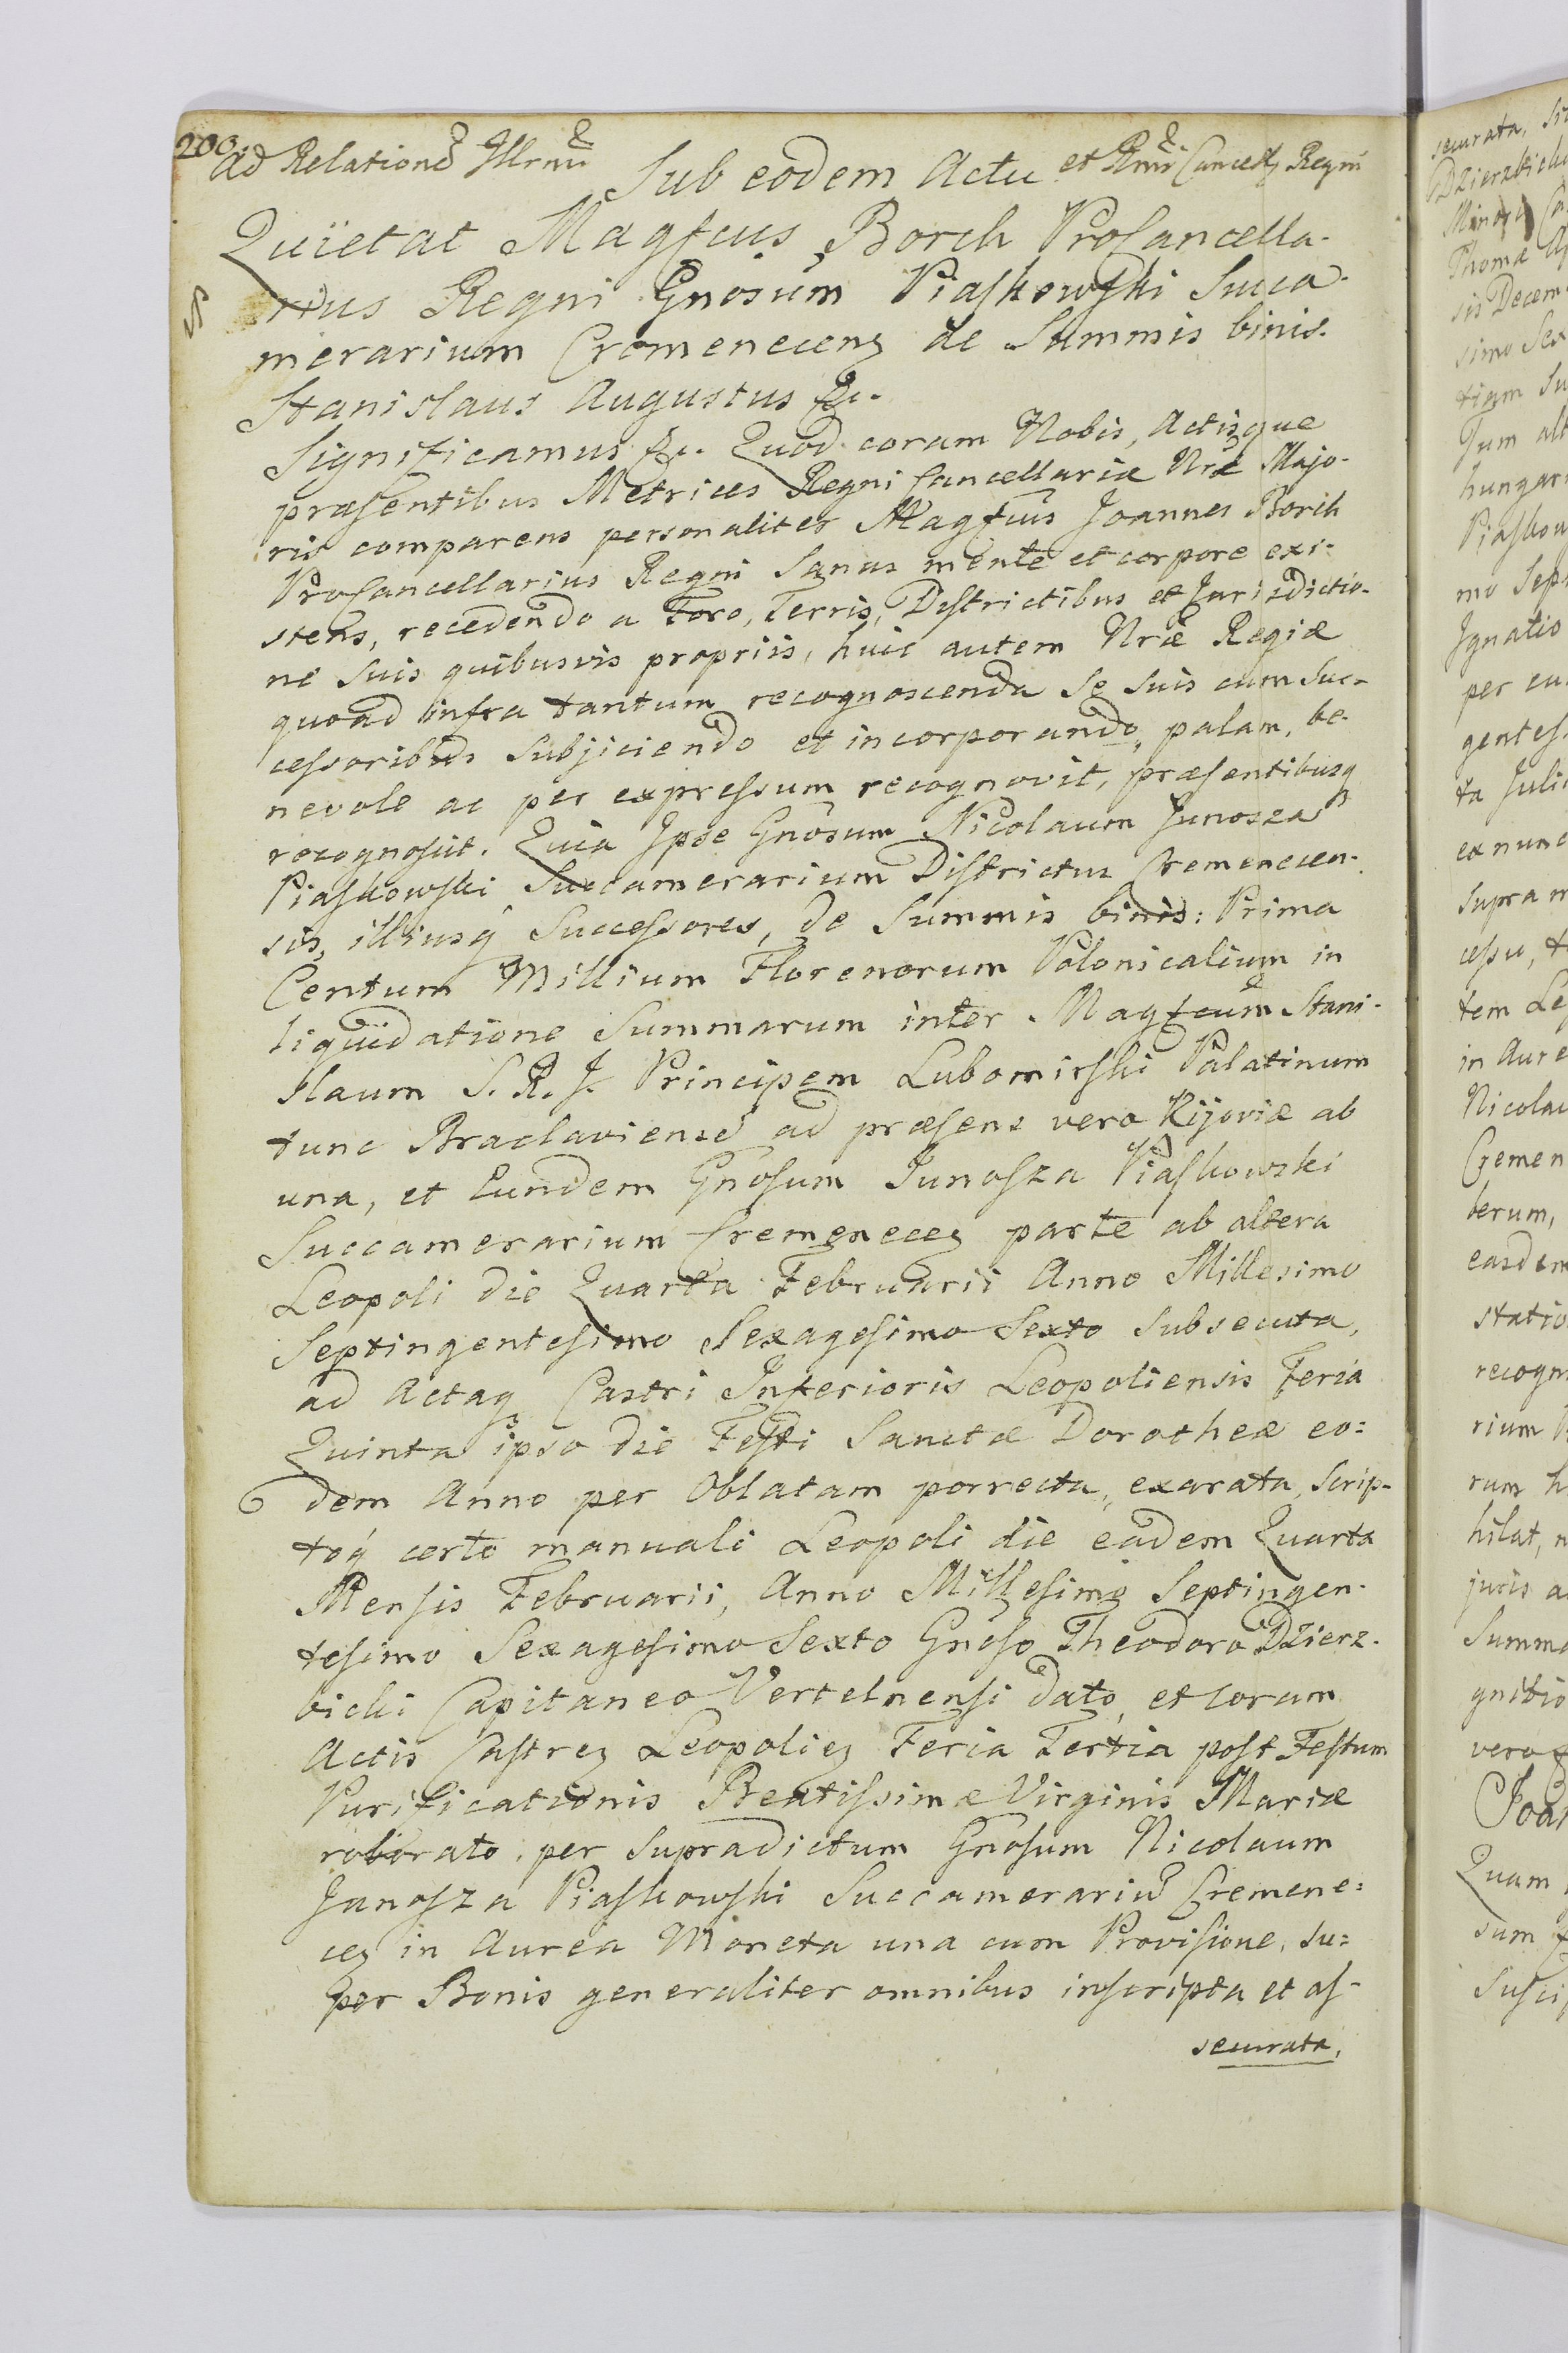 200.
Ad Relatione Illrmi et Rmi Cancellr Regni
Sub eodem Actu
Quietat Magfcus Borch ProCancella-
rius Regni Gnosum Piaskowski Succa-
merarium Cremenecens de Summis binis.
Stanislaus Augustus &c.
Significamus &c. Quod coram Nobis, Actisque
præsentibus Metrices Regni Cancellariæ Nræ Majo-
ris comparens personaliter Magfcus Joannes Borch
ProCancellarius Regni Sanus mente et corpore exi-
stens, recedendo a Foro, Terris, Districtibus et Jurisdictio-
ne suis quibusvis propriis, huic autem Nræ Regiæ
quoad infra tantum recognoscenda se suis cum suc-
cessoribus Subjiciendo et incorporando, palam, be-
nevole ac per expressum recognovit, præsentibusq
recognoscit. Quia Ipse Gnosum Nicolaum Junosza
Piaskowski Succamerarium Districtus Cremenecen-
sis, illiusq Successores, de Summis binis: Prima
Centum Millium Florenorum Polonicalium in
liquidatione Summarum inter Magfcum Stani-
slaum S. R. J. Principem Lubomirski Palatinum
tunc Braclaviense ad præsens vero Kijoviæ ab
una, et Eundem Gnosum Junosza Piaskowski
Succamerarium Cremenecen parte ab altera
Leopoli die Quarta Februarii Anno Millesimo
Septingentesimo Sexagesimo Sexto subsecuta,
ad Actaq Castri Inferioris Leopoliensis Feria
Quinta ipso die Festi Sanctæ Dorotheæ eo=
dem Anno per Oblatam porrecta, exarata, scrip-
toq certo manuali Leopoli die eadem Quarta
Mensis Februarii, Anno Millesimo Septingen-
tesimo Sexagesimo Sexto Gnoso Theodoro Dzierz-
bicki Capitaneo Vertelnensi dato, et coram
Actis Castren Leopolien Feria Tertia post Festum
Purificationis Beatissimæ Virginis Mariæ
roborato, per Supradictum Gnosum Nicolaum
Junosza Piaskowski Succamerariu Cremene=
cen in Aurea Moneta una cum Provisione, su=
per Bonis generaliter omnibus inscripta et as-
securata,